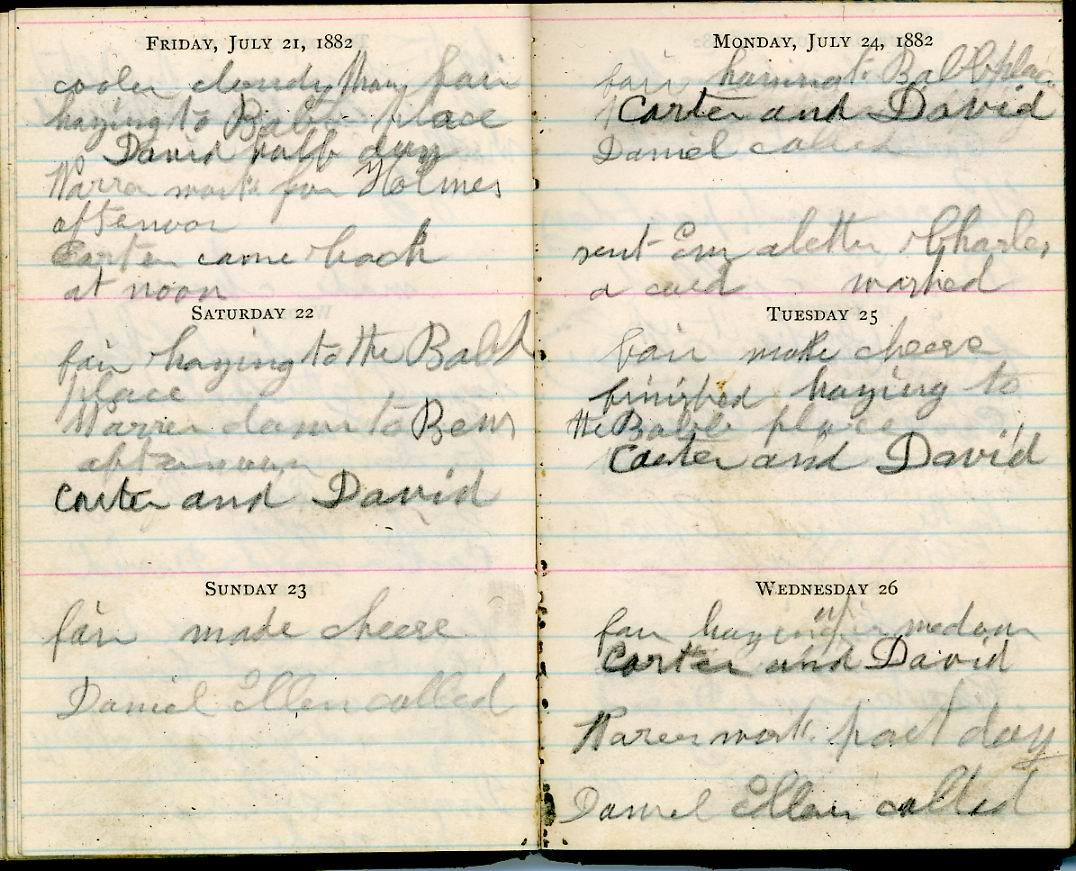 FRIDAY, JULY 21, 1882
cooler cloudy than fair
haying to Balb place
David half day
Warren work for Holmes
afternoon
Carter came back
at noon
SATURDAY 22
fair haying to the Balch
place
Warren down to Bens
afternoon
Carter and David
SUNDAY 23
fair made cheese
Daniel Ellen called
MONDAY, JULY 24, 1882
fair haying to Balb place
Carter and David
Daniel called
sent Em a letter Charles
a card washed
TUESDAY 25
fair made cheese
finished haying to
the Balb place
Carter and David
WEDNESDAY 26
fair haying in medow
Carter and David
Warren work part day
Daniel Ellen called